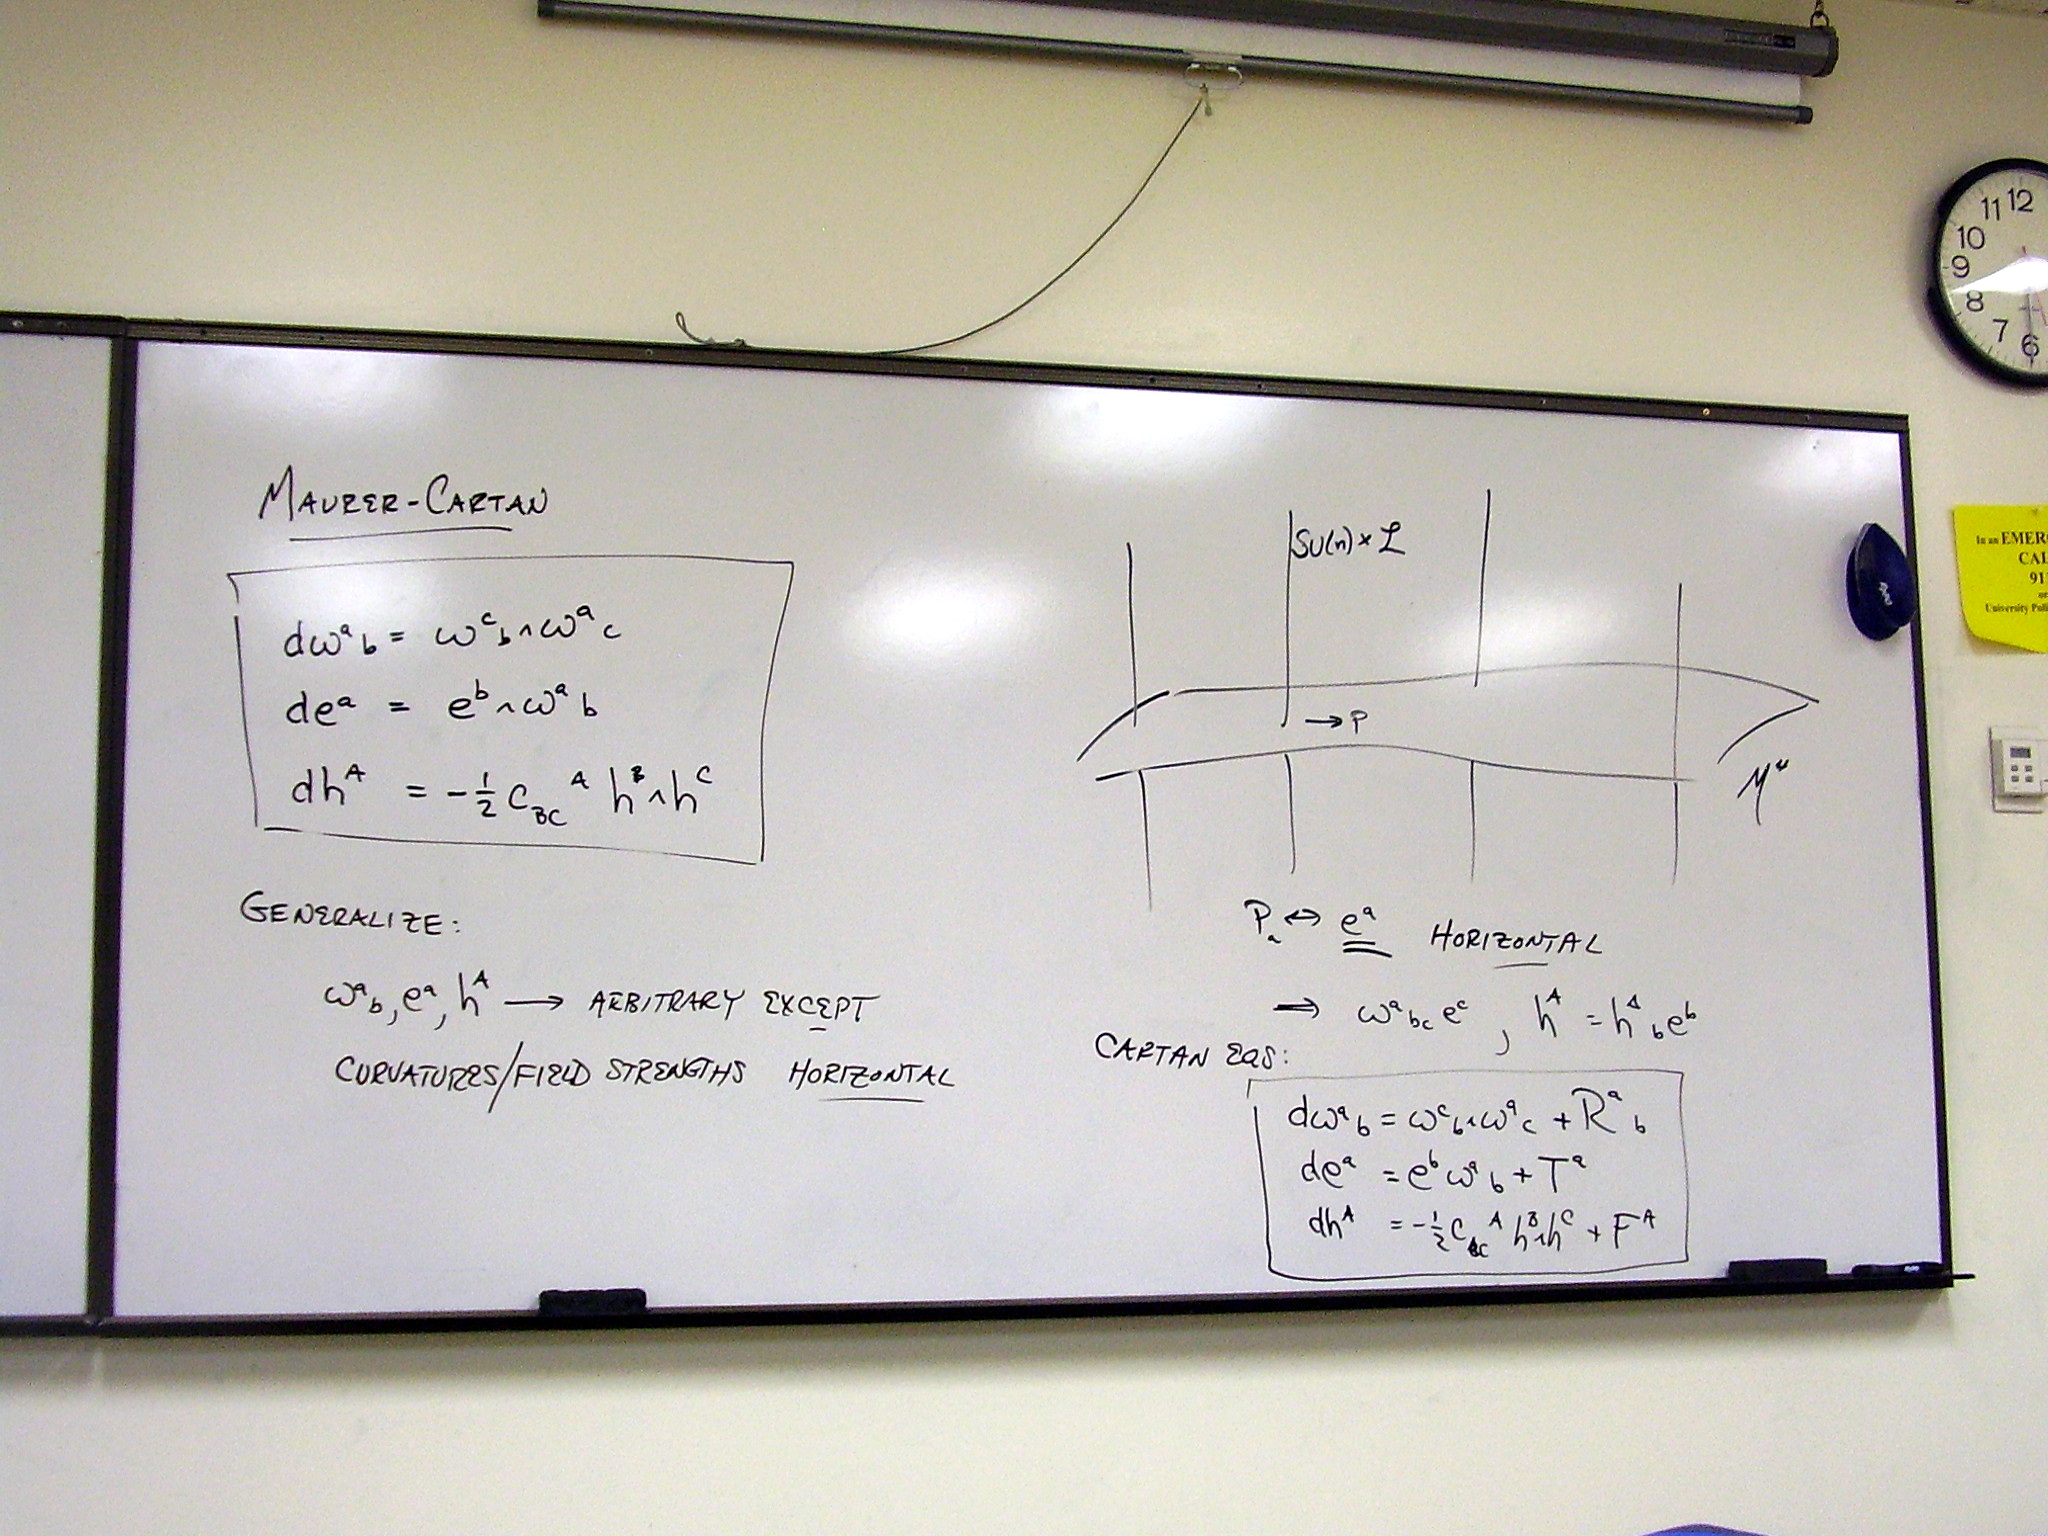 MAURER-CARTAN
dωᵃb = ωᶜb∧ωᵃc
deᵃ = eᵇ∧ωᵃb
dhᴬ = -½ c_BC ᴬ hᴮ∧hᶜ
GENERALIZE:
ωᵃb, eᵃ, hᴬ → ARBITRARY EXCEPT
CURVATURES/FIELD STRENGTHS HORIZONTAL
SU(n) × ℒ
→ P
Pₐ ↔ eᵃ HORIZONTAL
⇒ ωᵃbc eᶜ, hᴬ = hᴬb eᵇ
CARTAN EQS:
dωᵃb = ωᶜb∧ωᵃc + Rᵃb
deᵃ = eᵇωᵃb + Tᵃ
dhᴬ = -½ c_BC ᴬ hᴮ∧hᶜ + Fᴬ
11 12
10
9
8
7
6
In an EMER
CAL
91
or
University Poli